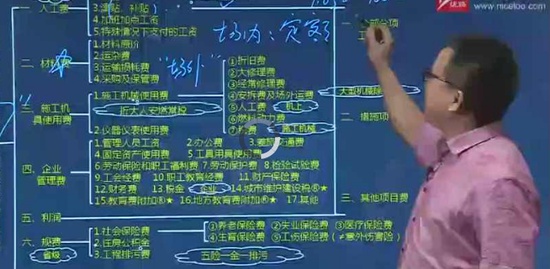 一、人工费
3.津贴、补贴
4.加班加点工资
5.特殊情况下支付的工资
场内：
二、材料费
1.材料原价
2.运杂费
3.运输损耗费
4.采购及保管费
"场外"
三、施工机具使用费
1.施工机械使用费
折大人安燃常税
2.仪器仪表使用费
①折旧费
②大修理费
③经常修理费
④安拆费及场外运费
⑤人工费
机上
⑥燃料动力费
⑦税费
施工机械
四、企业管理费
1.管理人员工资 2.办公费 3.差旅交通费
4.固定资产使用费 5.工具用具使用费
6.劳动保险和职工福利费 7.劳动保护费 8.检验试验费
9.工会经费 10.职工教育经费 11.财产保险费
12.财务费 13.税金 企业 14.城市维护建设税⑥★
15.教育费附加⑧★ 16.地方教育费附加⑧★ 17.其他
五、利润
六、规费
省级
1.社会保险费
2.住房公积金
3.工程排污费
①养老保险费 ②失业保险费 ③医疗保险费
④生育保险费 ⑤工伤保险费（≠意外伤害险）
五险一金一排污
一、分部分项
大型机械
二、措施项
三、其他项目费
优路
www.niceloo.com